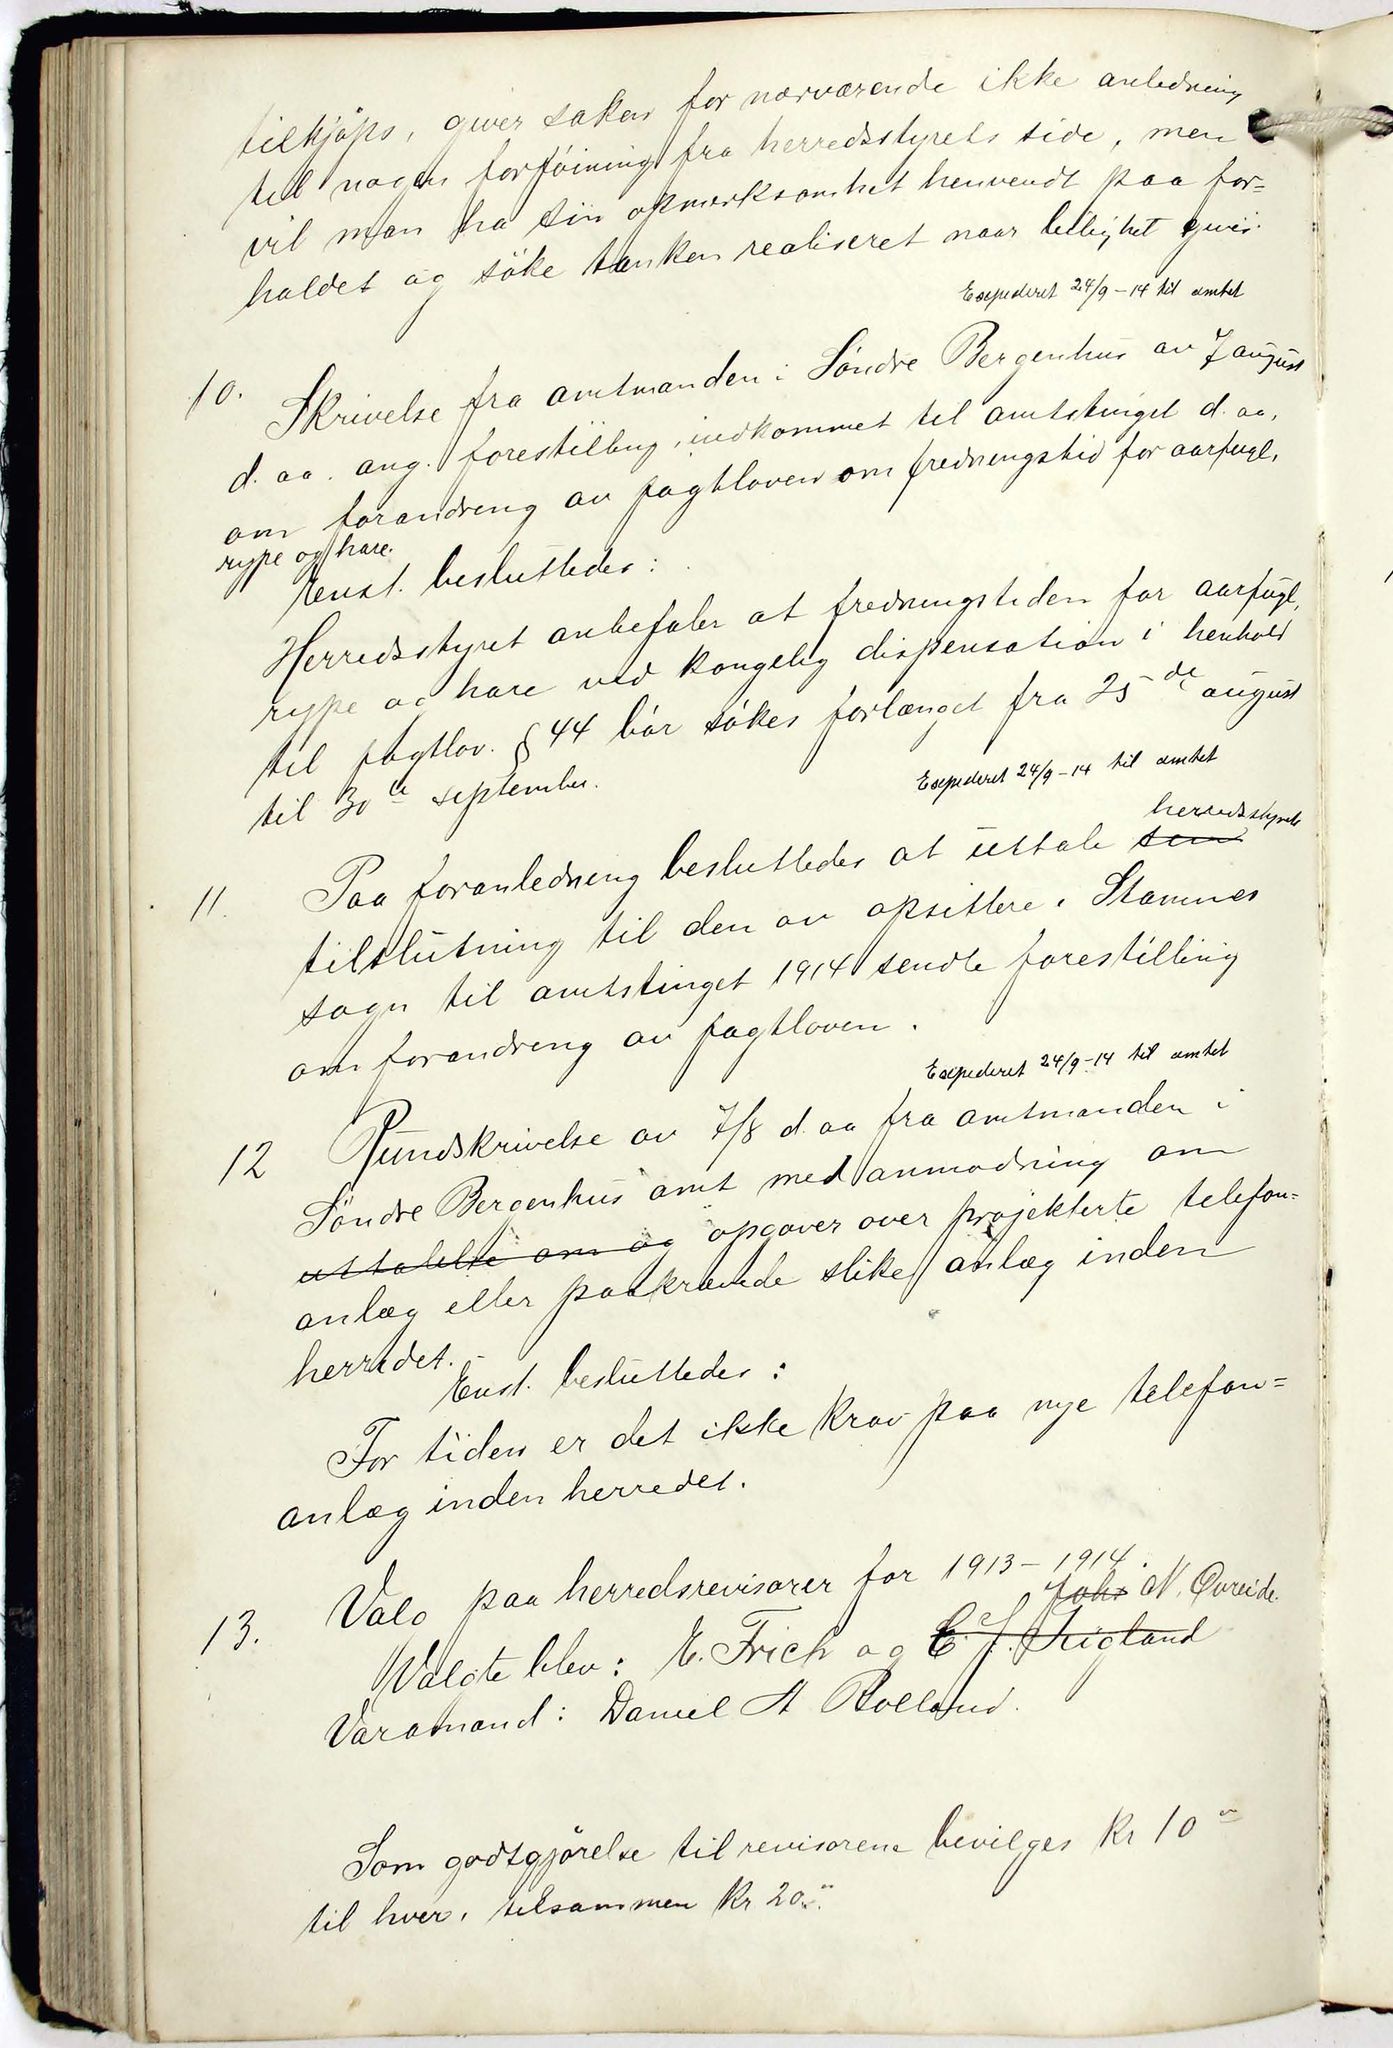 tilkjöps, giver saken for nærværende ikke anledning
til nogen forföining fra herredsstyrets side, men
vil man ha sin opmerksomhet henvendt paa for=
holdet og söke tanken realiseret naar leilighet gives.
Expederet 24/9-14 til amtet
10. Skrivelse fra amtmanden i Söndre Bergenhus av 7 august
d. aa. ang. forestilling, indkommet til amtstinget d. aa,
om forandring av jagtloven om fredningstid for aarfugl,
rype og hare.
Enst. besluttedes:
Herredsstyret anbefaler at fredningstiden for aarfugl,
rype og hare ved kongelig dispensation i henhold
til jagtlov. § 44 bör sökes forlænget fra 25de august
til 30te september.
Expederet 24/9-14 til amtet
herredsstyrets
11. Paa foranledning besluttedes at uttale sin
tilslutning til den av opsittere i Stamnes
sogn til amtstinget 1914 sendte forestilling
om forandring av jagtloven.
Expederet 24/9-14 til amtet
12 Rundskrivelse av 7/8 d. aa fra amtmanden i
Söndre Bergenhus amt med anmodning om
uttalelse om og opgaver over projekterte telefon=
anlæg eller paakrævede slike anlæg inden
herredet.
Enst. besluttedes:
For tiden er det ikke krav paa nye telefon=
anlæg inden herredet.
13. Valg paa herredsrevisorer for 1913-1914.
Johs N. Qvreide.
Valgte blev: E. Frich og E. J. Trigland
Varamand: Daniel A Bolland.
Som godtgjörelse til revisorene bevilges kr 10
til hver, tilsammen kr 20